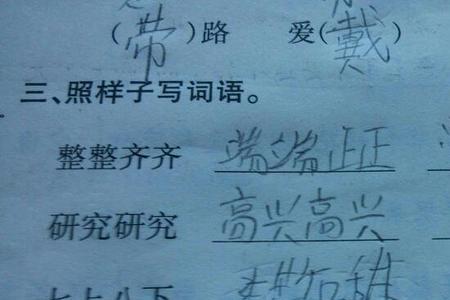 (带)路 爱(戴)
三、照样子写词语。
整整齐齐 端端正正
研究研究 高兴高兴
七上八下